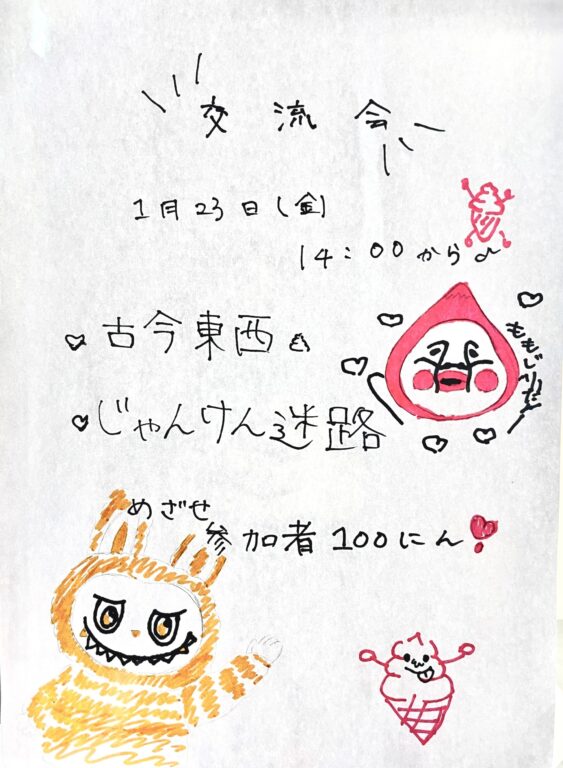 交流会
1月23日(金)
14:00から♪
♡古今東西
♡じゃんけん迷路
ももじりだ〜
めざせ
参加者100にん